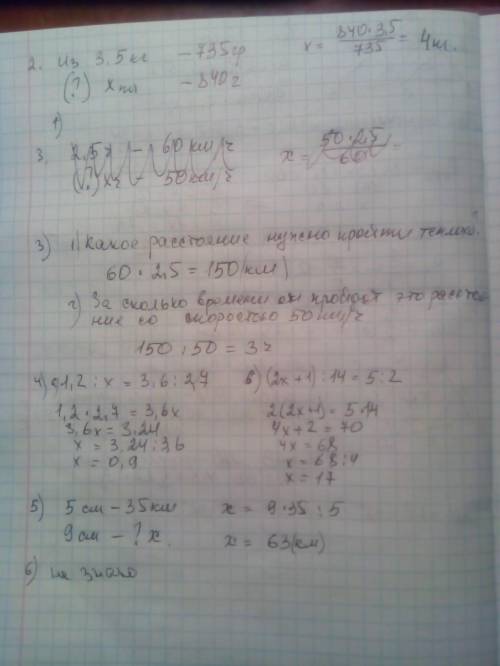 2. Из 3,5 кг – 735 гр x = 840·3,5/735 = 4 кг.
(?) x – 840 г
1)
3. 2,5 ч – 60 км/ч x = 50·2,5/60 =
(?) x ч – 50 км/ч
3) 1) Какое расстояние нужно пройти
60 · 2,5 = 150 (км)
2) За сколько времени он пройдет это расстоя
ние со скоростью 50 км/ч
150 : 50 = 3 ч
4) а) 1,2 : x = 3,6 : 2,7 в) (2x+1) : 14 = 5 : 2
1,2 · 2,7 = 3,6x 2(2x+1) = 5·14
3,6x = 3,24 4x + 2 = 70
x = 3,24 : 3,6 4x = 68
x = 0,9 x = 68 : 4
x = 17
5) 5 см – 35 км x = 9·35 : 5
9 см – ? x. x = 63 (км)
6) не знаю